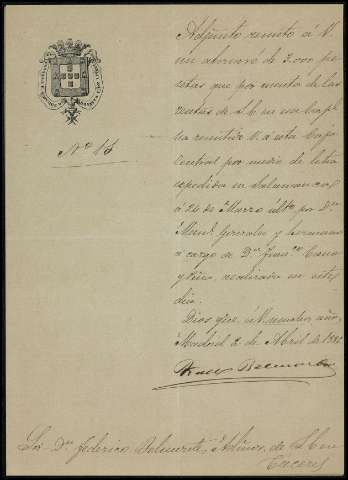 Nº 15
Adjunto remito á V.
un abonaré de 3.000 pe
setas que por cuenta de las
rentas de S.E. en esa
remitió V. á esta Caja
Central por medio de letra
expedida en Salamanca
á 24 de Marzo últº por Dn
Manl Gonzalez y hermano
á cargo de Dn Franco
realizada en este
dia.
Dios gue. á V. muchos años,
Madrid 2 de Abril de
Sor Dn Federico Admor. de S.E. en
Caceres